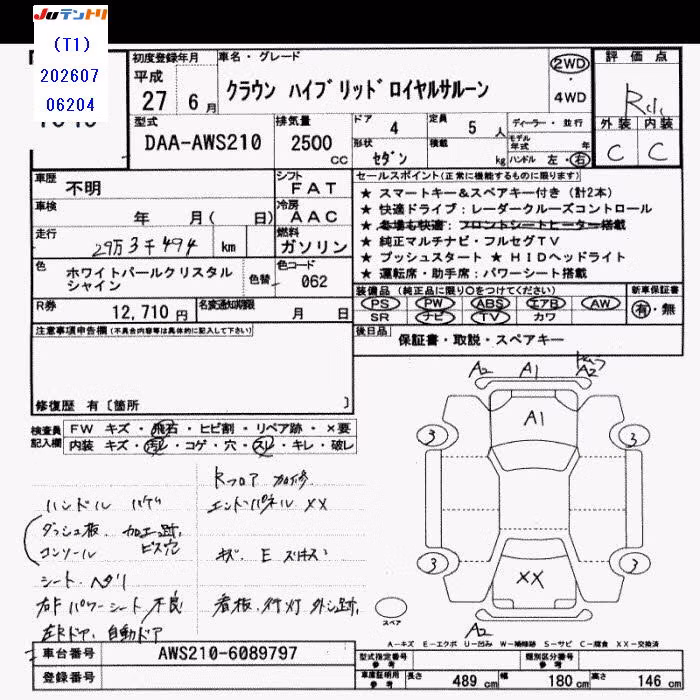 JUテントリ
(T1)
202607
06204
初度登録年月
平成
27 6月
車名・グレード
クラウン ハイブリッドロイヤルサルーン
2WD
・
4WD
評価点
外装 内装
C C
型式
DAA-AWS210
排気量
2500
cc
ドア 4
定員 5 人
形状 セダン
積載 kg
ディーラー・並行
モデル年式 年
ハンドル 左・右
車歴 不明
シフト
FAT
車検 年 月( 日)
冷房
AAC
走行 29万3千494 km
燃料
ガソリン
色 ホワイトパールクリスタルシャイン
色替
色コード
062
R券 12,710円
名変通知期限 月 日
セールスポイント(正常に機能するものに限ります)
★ スマートキー&スペアキー付き(計2本)
★ 快適ドライブ:レーダークルーズコントロール
★ 冬場も快適:フロントシートヒーター搭載
★ 純正マルチナビ・フルセグTV
★ プッシュスタート ★ HIDヘッドライト
★ 運転席・助手席:パワーシート搭載
装備品(純正品に限り○をつけてください)
新車保証書
PS PW ABS エアB AW
SR ナビ TV カワ
有・無
後日品 保証書・取説・スペアキー
注意事項申告欄(不具合内容等は具体的に記入して下さい)
修復歴 有〔箇所 〕
検査員記入欄
FW キズ・飛石・ヒビ割・リペア跡・×要
内装 キズ・汚レ・コゲ・穴・スレ・キレ・破レ
Rフロア 加修.
ハンドル ハゲ
エンドパネル XX
ダッシュ板. 加工跡.
コンソール ビス穴
キズ. E
シート. ヘタリ
右F パワーシート 不良
看板. 行灯 外し跡.
自動ドア
A2 A1 A2
A1
3 3
3 3
XX
A2
スペア
A-キズ E-エクボ U-凹み W-補修跡 S-サビ C-腐食 XX-交換済
車台番号 AWS210-6089797
登録番号
型式指定番号 参考
類別区分番号 参考
車庫証明用 参考
長さ 489 cm 幅 180 cm 高さ 146 cm